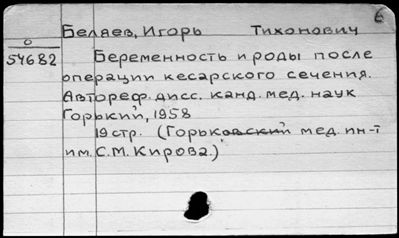 6
Беляев, Игорь Тихонович
0
54682
Беременность и роды после
операции кесарского сечения.
Автореф. дисс. канд. мед. наук
Горький, 1958
19 стр. (Горьковский мед. ин-т
им. С.М. Кирова.)